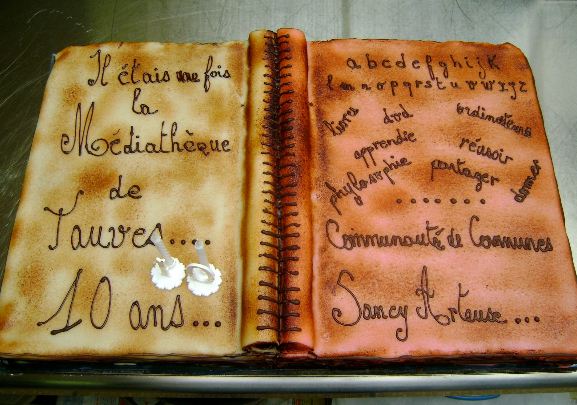 Il étais une fois
la
Médiathèque
de
Tauves....
10 ans...
abcdefghijk
lmnopqrstuvwxyz
livres dvd ordinateurs
apprendre réussir
phylosophie partager donner
.......
Communauté de Communes
Sancy Artense...